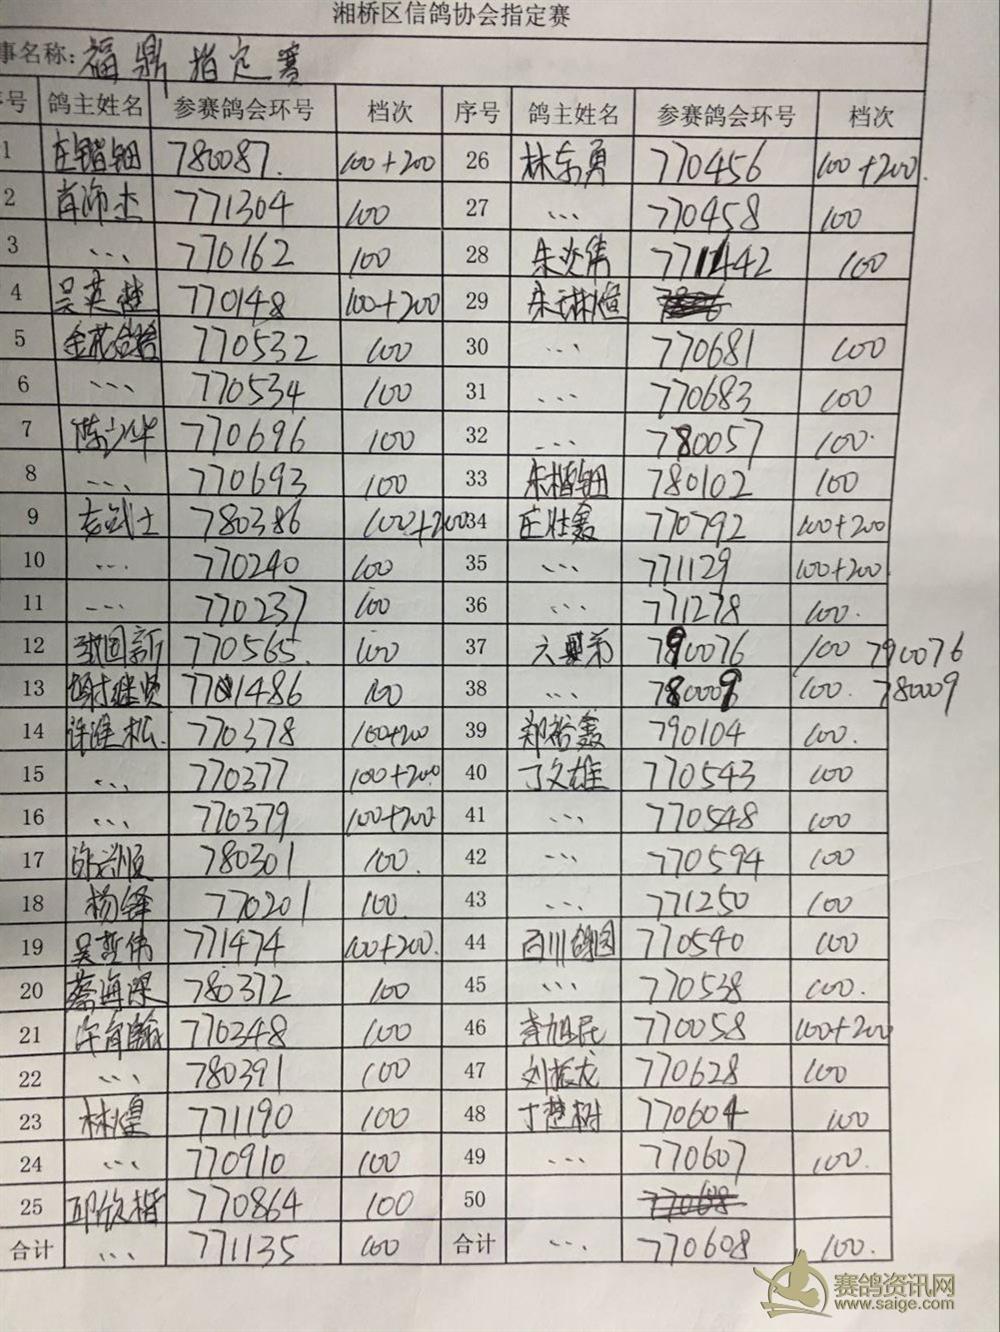 湘桥区信鸽协会指定赛
事名称: 福鼎指定赛
号 鸽主姓名 参赛鸽会环号 档次 序号 鸽主姓名 参赛鸽会环号 档次
1 庄锴钿 780087. 100+200 26 林东勇 770456 100+200.
2 肖沛杰 771304 100 27 、、、 770458 100
3 、、、 770162 100 28 朱炎伟 771442 100
4 吴英楚 770148 100+200 29 朱琳煊
5 金花鸽舍 770532 100 30 、、、 770681 100
6 、、、 770534 100 31 、、、 770683 100
7 770696 100 32 、、、 780057 100.
8 、、、 770693 100 33 朱楷钿 780102 100
9 武士 780386 100+200 34 庄壮鑫 770792 100+200
10 、、、 770240 100 35 、、、 771129 100+200
11 、、、 770237 100 36 、、、 771278 100.
12 国新 770565. 100 37 六兄弟 790076 100 790076
13 谢继贤 771486 100 38 、、、 780009 100. 780009
14 许淮松. 770378 100+200 39 郑裕鑫 790104 100.
15 、、、 770377 100+200 40 丁文雄 770543 100
16 、、、 770379 100+200 41 、、、 770548 100
17 顺 780301 100. 42 、、、 770594 100
18 杨锋 770201 100. 43 、、、 771250 100
19 吴哲伟 771474 100+200. 44 百川鸽园 770540 100
20 蔡海深 780372 100 45 、、、 770538 100.
21 许育瀚 770348 100 46 李旭民 770058 100+200
22 、、、 780391 100 47 刘振龙 770628 100
23 林煌 771190 100 48 丁楚树 770604 100
24 、、、 770910 100 49 、、、 770607 100.
25 邱欣楷 770864 100 50 770608
合计 、、、 771135 100 合计 、、、 770608 100.
赛鸽资讯网
www.saige.com